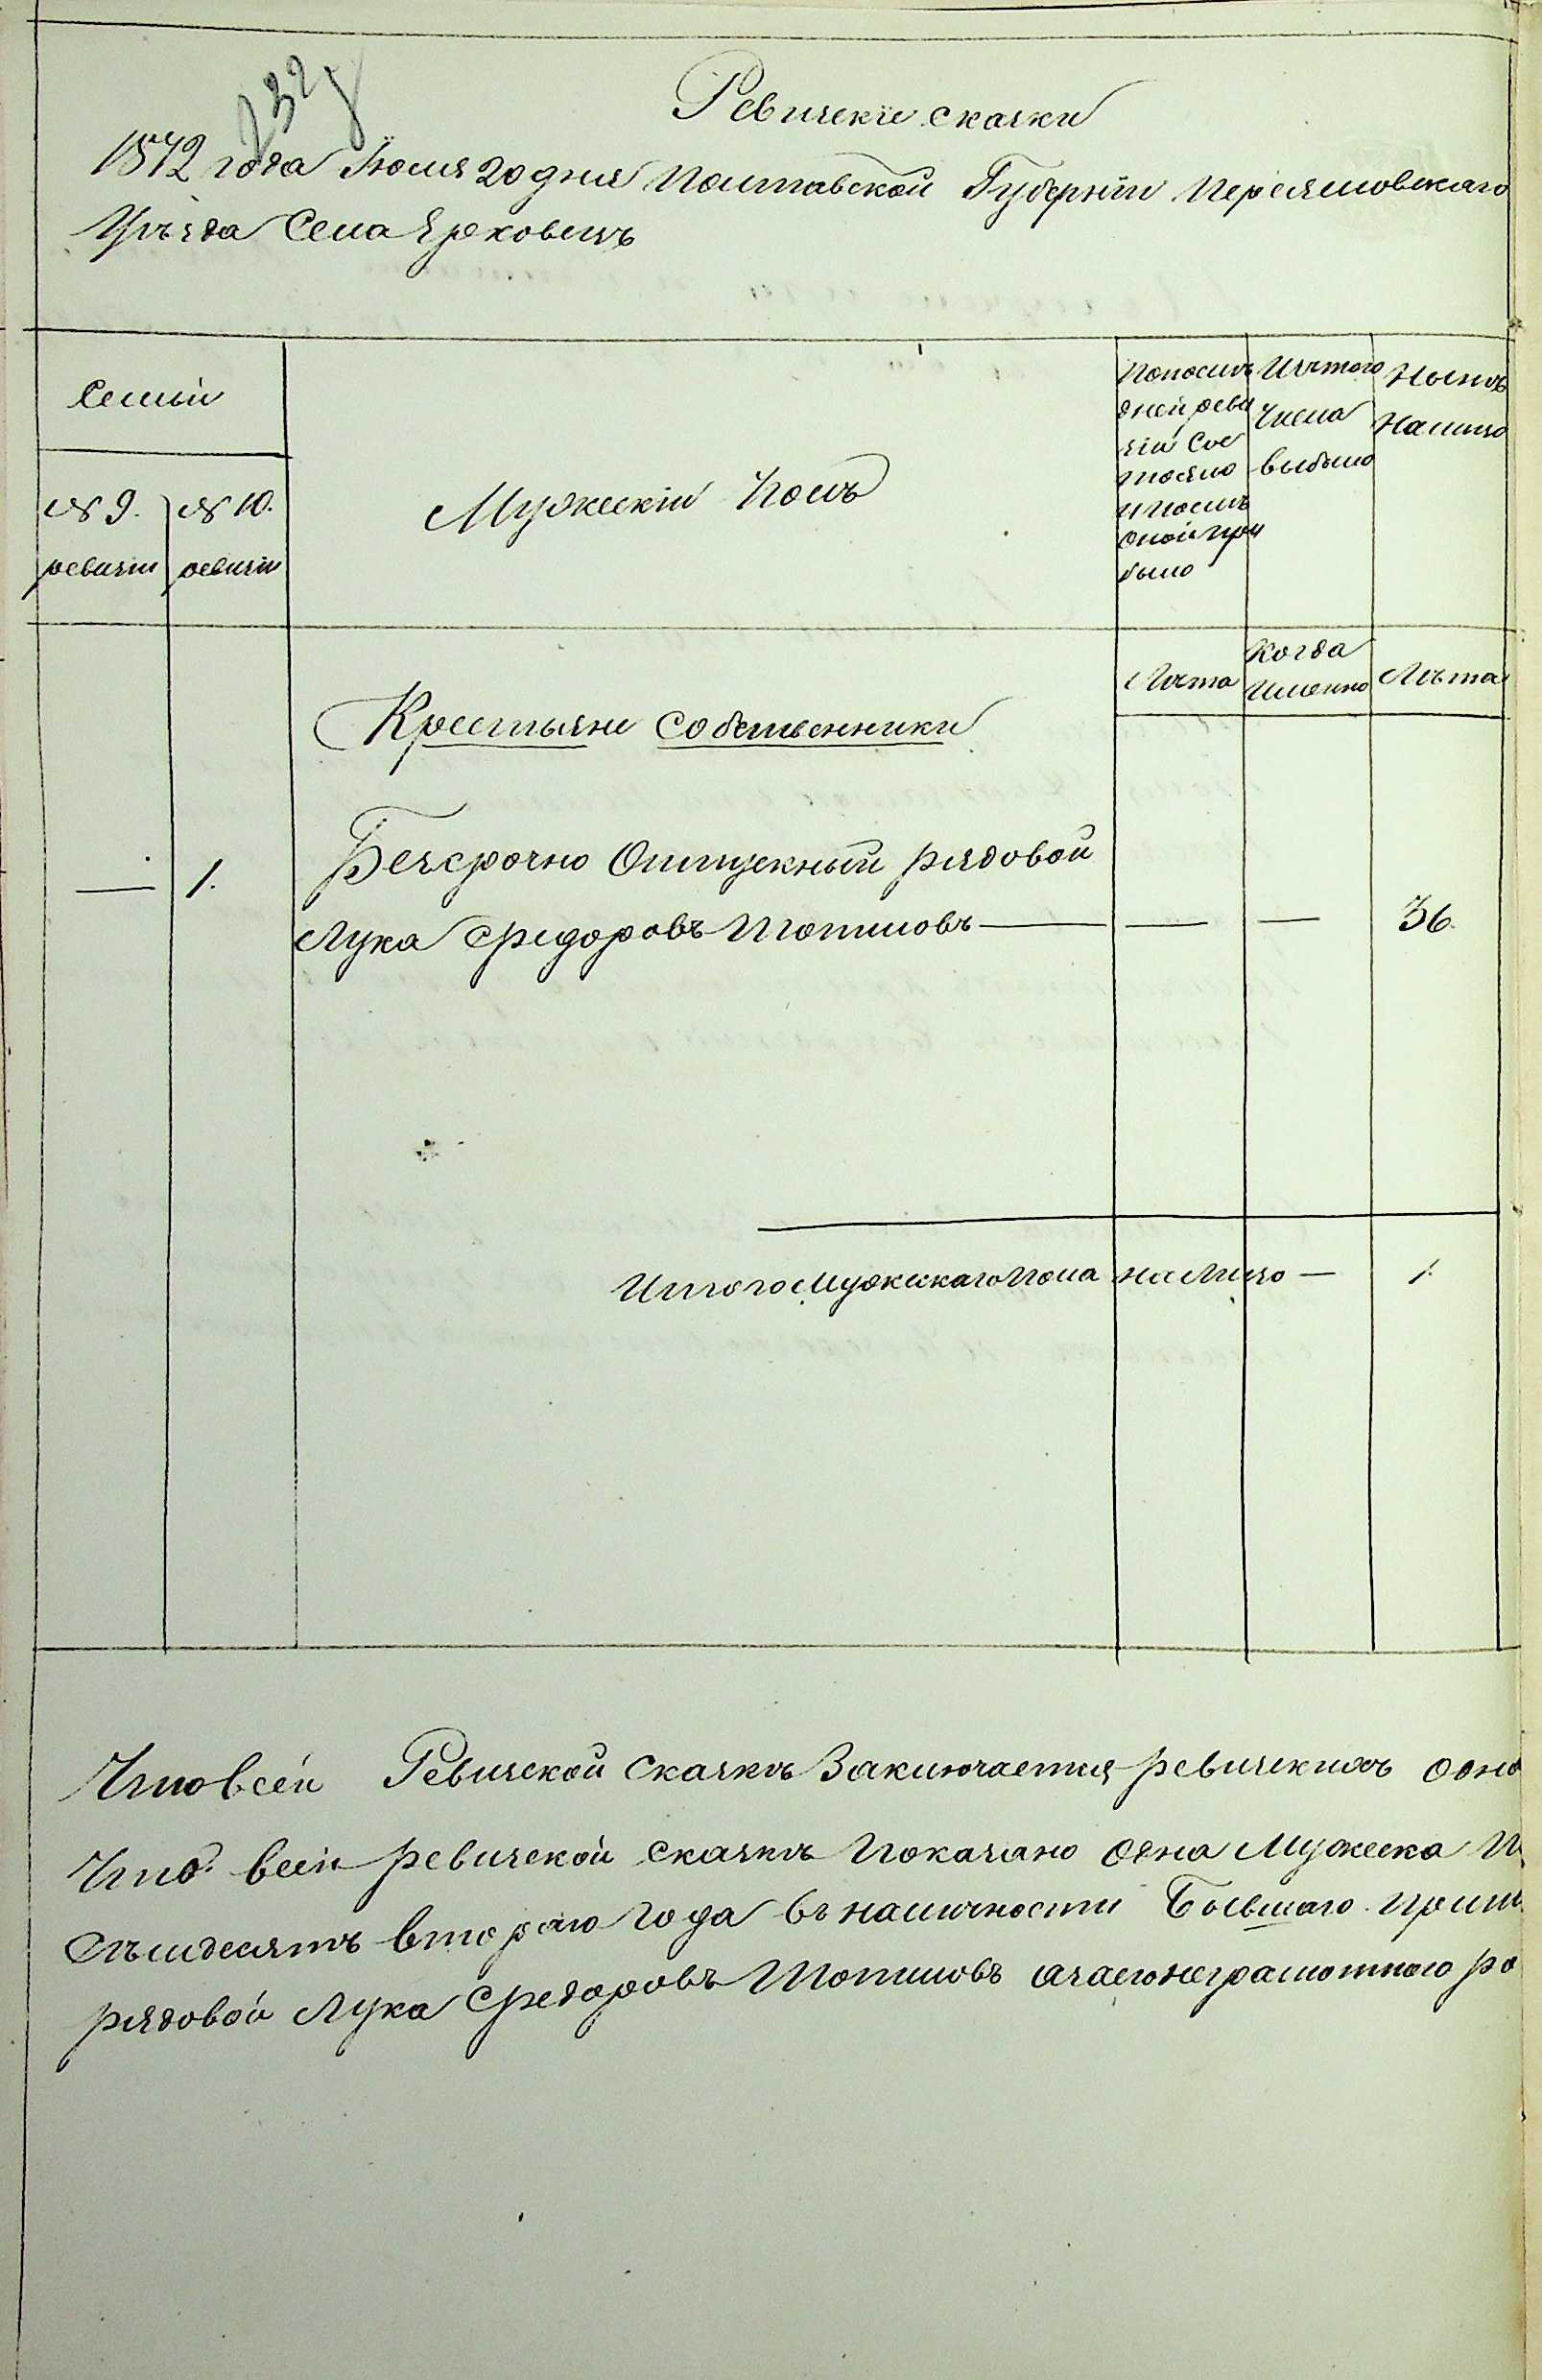 232
Ревизскіе сказки
1872 года Іюля 20 дня Полтавской Губерніи Переяславскаго
Уѣзда Села Ярковецъ
Семьи
№ 9. ревизіи
№ 10. ревизіи
Мужескій Полъ
По послѣдней ревизіи Состояло и послѣ оной прибыло
Изъ того Числа выбыло
Нынѣ Налицо
Лѣта
Когда Именно
Лѣта
Крестьяне Собственники
— 1. Безсрочно Отпускный рядовой
Лука Федоровъ Шотиловъ — — — 36.
Итого Мужескаго Пола на Лицо — 1.
Что в сей Ревизской Сказкѣ Заключается ревизскихъ одно
Что в сей ревизской сказкѣ Показано одна Мужеска П
семьдесятъ втораго Года въ наличности Бывшаго
рядовой Лука Федоровъ Шотиловъ а за его неграмотнаго ро